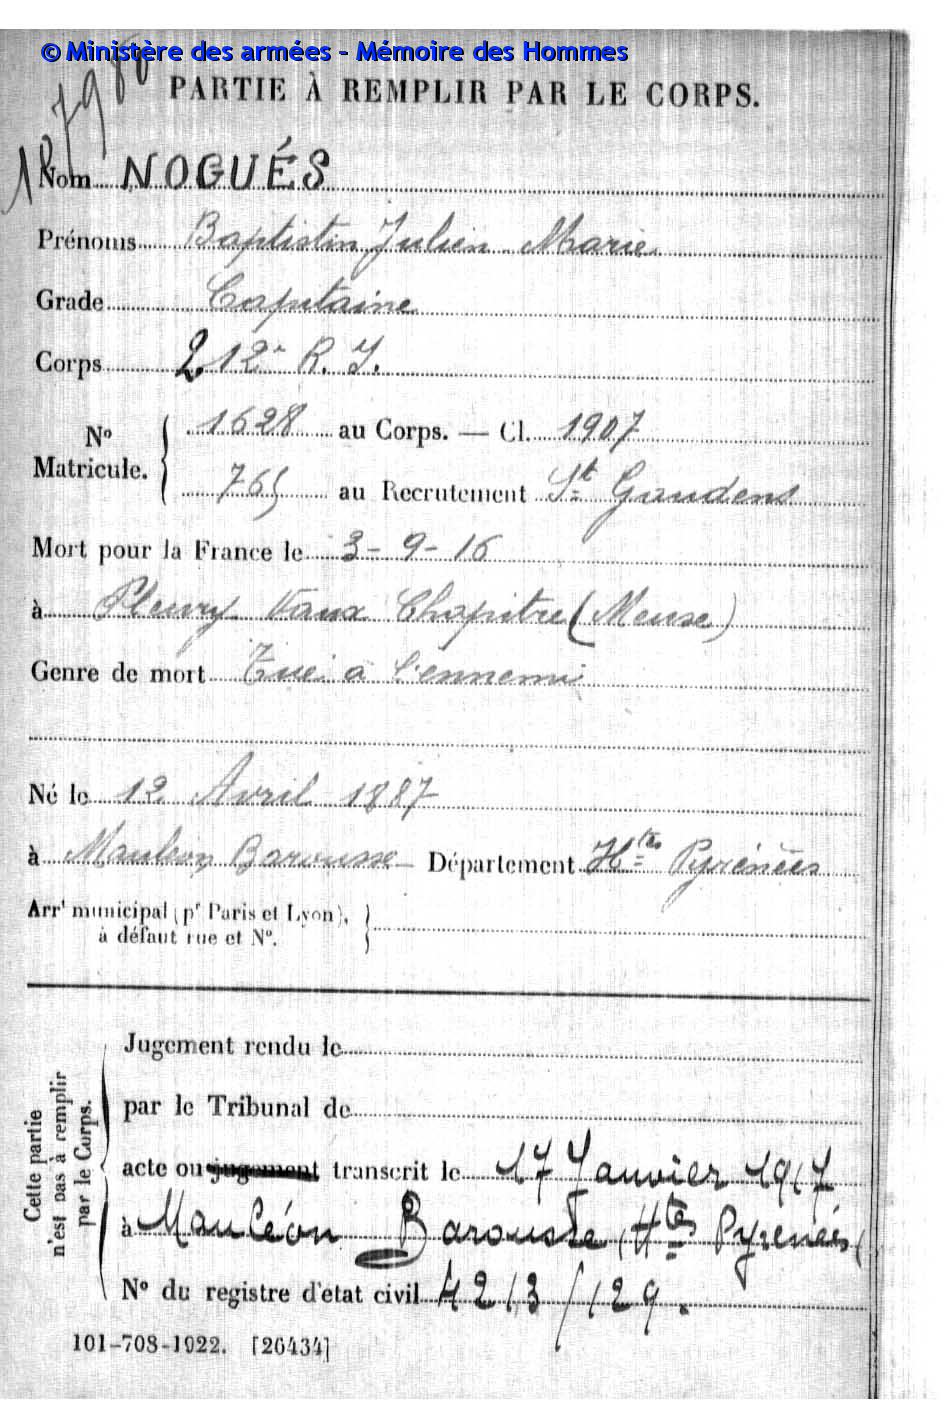 © Ministère des armées - Mémoire des Hommes
PARTIE À REMPLIR PAR LE CORPS.
Nom NOGUÉS
Prénoms Baptistin Julien Marie
Grade Capitaine
Corps 212e R. I.
No Matricule. 1628 au Corps. — Cl. 1907
765 au Recrutement St Gaudens
Mort pour la France le 3-9-16
à Fleury Vaux Chapitre (Meuse)
Genre de mort Tué à l'ennemi
Né le 12 Avril 1887
à Mauléon Barousse Département Htes Pyrénées
Arrt municipal (pr Paris et Lyon), à défaut rue et No.
Cette partie n'est pas à remplir par le Corps.
Jugement rendu le
par le Tribunal de
acte ou jugement transcrit le 17 Janvier 1917
à Mauléon Barousse (Htes Pyrénées)
No du registre d'état civil
101-708-1922. [26434]